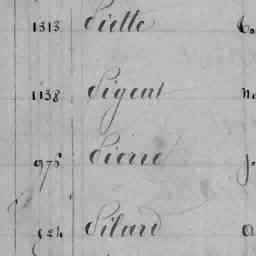 1313 Piette
1138 Pigeat
975 Pierre
Pilard